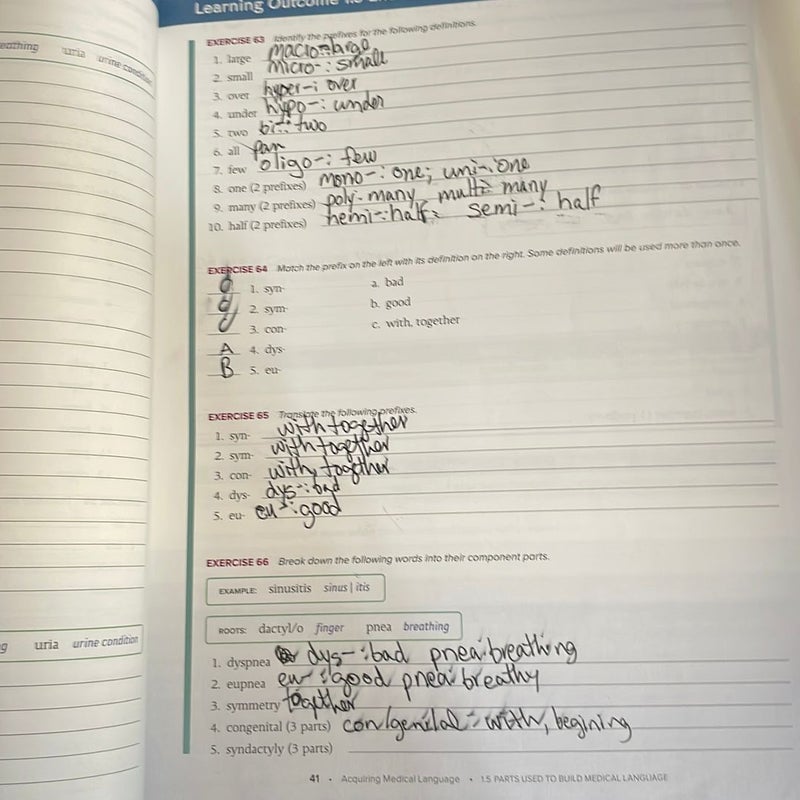 Learning Outcome 1.5
EXERCISE 63 Identify the prefixes for the following definitions.
1. large macro-: large
2. small micro-: small
3. over hyper-: over
4. under hypo-: under
5. two bi-: two
6. all Pan
7. few oligo-: few
8. one (2 prefixes) mono-: one; uni-: one
9. many (2 prefixes) poly- many multi- many
10. half (2 prefixes) hemi-: half; semi-: half
EXERCISE 64 Match the prefix on the left with its definition on the right. Some definitions will be used more than once.
1. syn- a. bad
2. sym- b. good
3. con- c. with, together
A 4. dys-
B 5. eu-
EXERCISE 65 Translate the following prefixes.
1. syn- with together
2. sym- with together
3. con- with, together
4. dys- dys-: bad
5. eu- eu-: good
EXERCISE 66 Break down the following words into their component parts.
EXAMPLE: sinusitis sinus | itis
ROOTS: dactyl/o finger pnea breathing
1. dyspnea dys-: bad pnea: breathing
2. eupnea eu-: good pnea: breathy
3. symmetry together
4. congenital (3 parts) con/genital - with, begining
5. syndactyly (3 parts)
41 • Acquiring Medical Language • 1.5 PARTS USED TO BUILD MEDICAL LANGUAGE
eathing uria urine condition
g uria urine condition